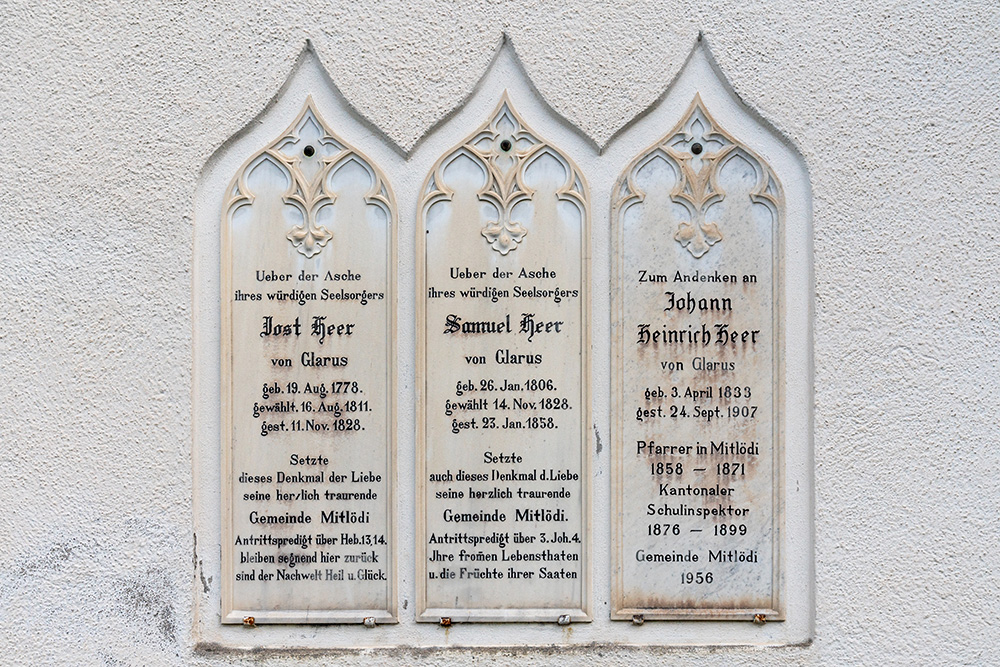 Ueber der Asche
ihres würdigen Seelsorgers
Jost Heer
von Glarus
geb. 19. Aug. 1778.
gewählt. 16. Aug. 1811.
gest. 11. Nov. 1828.
Setzte
dieses Denkmal der Liebe
seine herzlich traurende
Gemeinde Mitlödi
Antrittspredigt über Heb. 13, 14.
bleiben segnend hier zurück
sind der Nachwelt Heil u. Glück.
Ueber der Asche
ihres würdigen Seelsorgers
Samuel Heer
von Glarus
geb. 26. Jan. 1806.
gewählt 14. Nov. 1828.
gest. 23. Jan. 1858.
Setzte
auch dieses Denkmal d. Liebe
seine herzlich traurende
Gemeinde Mitlödi.
Antrittspredigt über 3. Joh. 4.
Jhre from̄en Lebensthaten
u. die Früchte ihrer Saaten
Zum Andenken an
Johann
Heinrich Heer
von Glarus
geb. 3. April 1833
gest. 24. Sept. 1907
Pfarrer in Mitlödi
1858 – 1871
Kantonaler
Schulinspektor
1876 – 1899
Gemeinde Mitlödi
1956